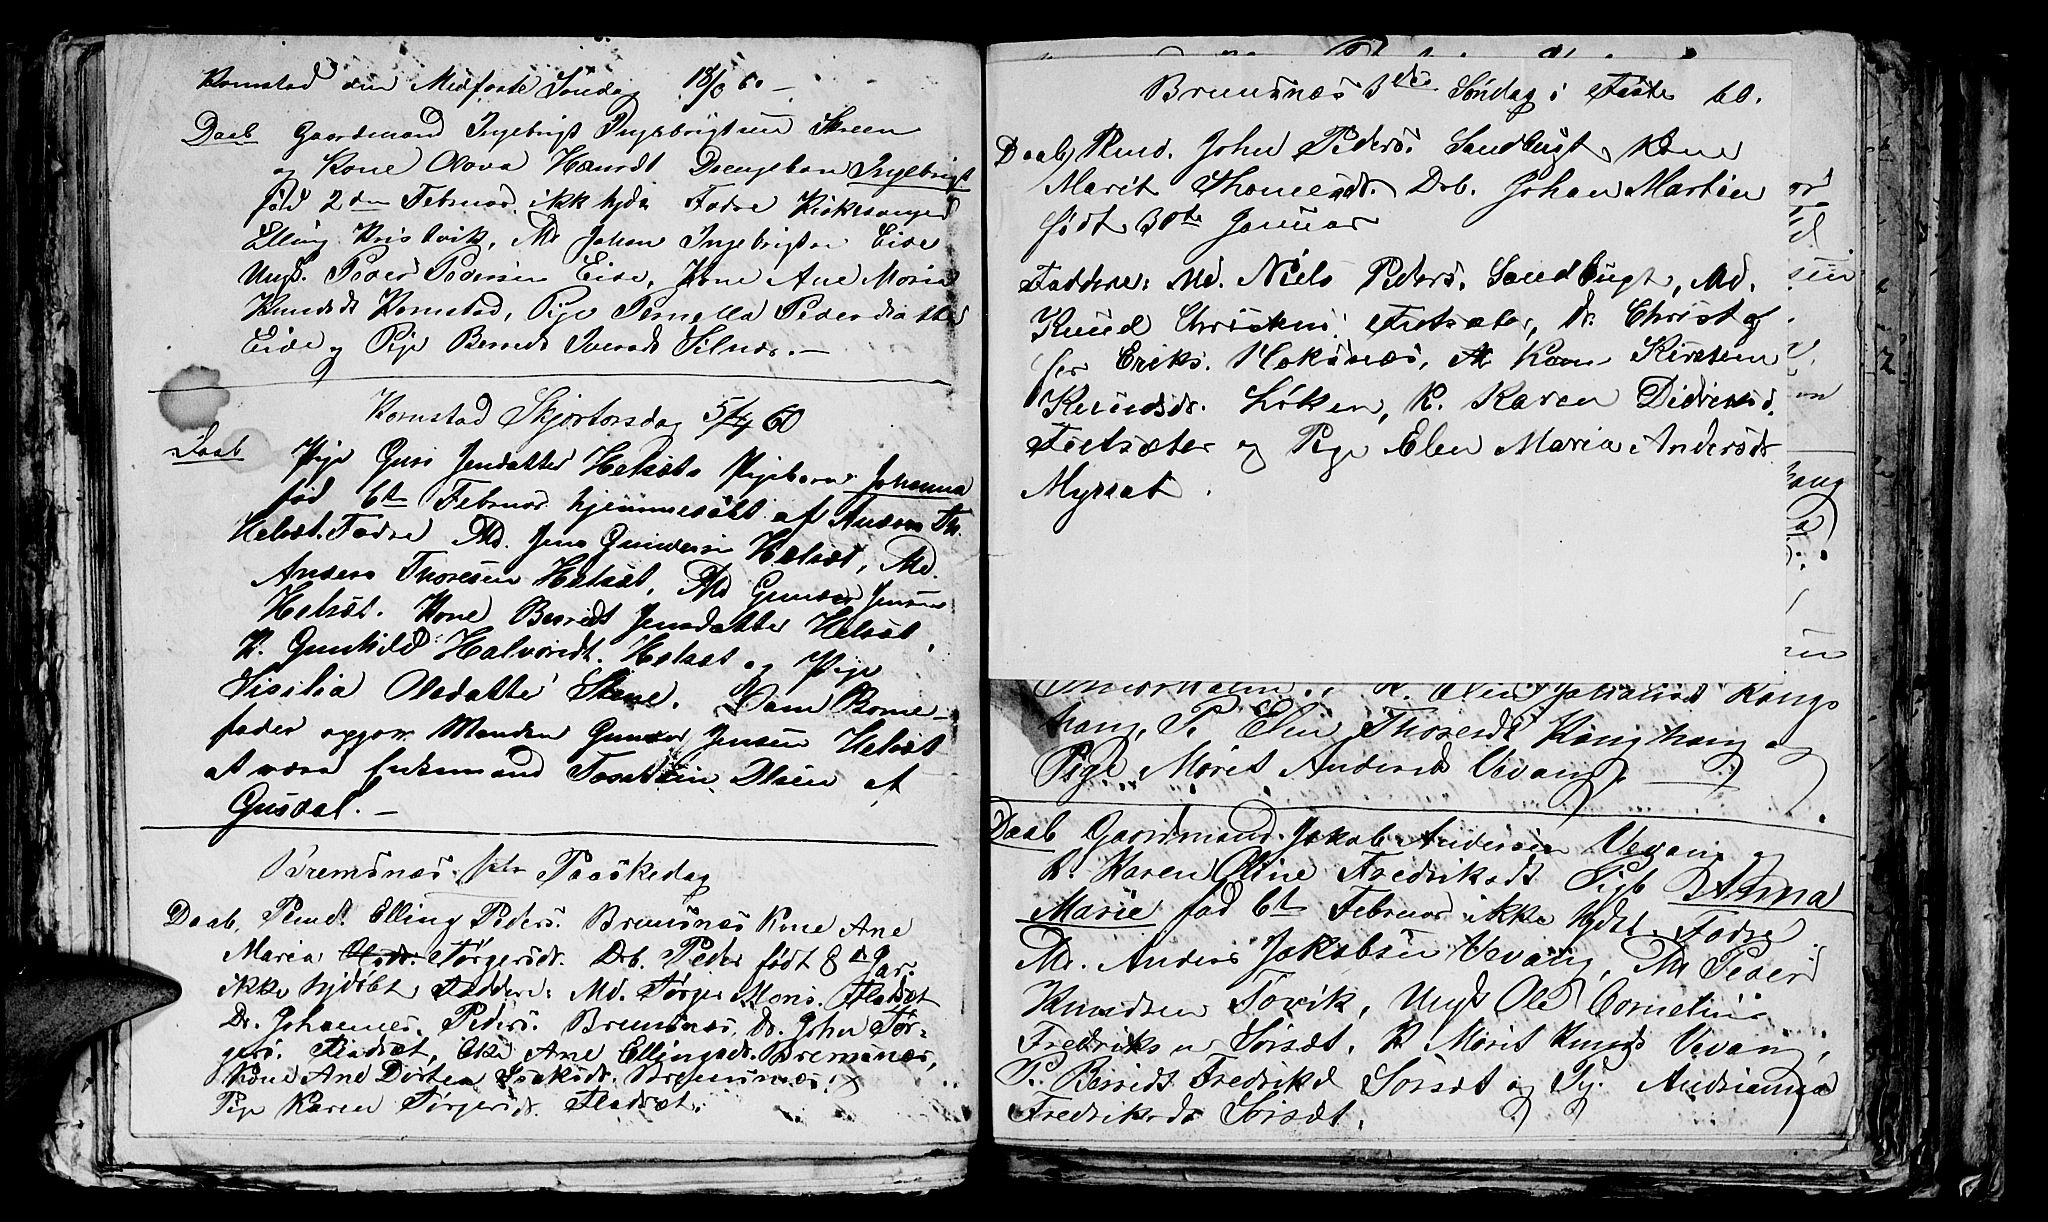 Kornstad den Midfaste Søndag 18/3 60 –
Daab Gaardmand Ingebrigt Ingebrigtsen Skeen
og Kone Olova Drengebarn Ingebrigt
fød 2den Februar, ikk hjdø Fadre Kirkesanger
Elling Kristvik, Md Johan Ingebrigtsn Eide
Ungk. Peder Pedersen Eide, Kone Ane Maria
Knudsdt Kornstad, Pige Pernella Pedersdatter
Eide og Pige Beret Iversdt Silnæs. –
Kornstad Skjærtorsdag 5/4 60
Daab Pige Guri Jensdatter Helsæt Pigebarn Johanna
fød 6te Februar hjemmedøbt af Anders Th.
Helsæt. Fadre Md. Jens Gundersen Helsæt, Md.
Anders Thoresen Helsæt, Md Gunder Jensen
Helsæt. Kone Beret Jensdatter Helsæt,
K. Gunhild Halvorsdt. Helsæt og Pige
Sisilia Olsdatter Skene. Som Barne-
fader opgav Manden Gunder Jensen Helsæt
at være Enkemand Torsten Olsen af
Gusdal. –
Bremsnæs 1ste Paaskedag
Daab, Plmd. Elling Peders. Bremsnæs Kone Ane
Maria Tørgersdt. Drb. Peder født 8de Jar.
ikke hjdøbt, Faddere: Md. Tørger Mons. Fladsæt
Dr. Johannes Peders. Bremsnæs, Dr. John Tør-
gers. Fladsæt, Eke Ane Ellingsdt. Bremsnæs,
Kone Ane Dorten Isaksdt. Bremsnæs,
Pige Karen Tørgersdt. Fladsæt.
Bremsnæs 3die Søndag i Faste 60.
Daab, Plmd. John Peders. Sandbugt, Kone
Marit Thomesdt. Drb. Johan Martin
født 30te Januar
Faddere: Md. Niels Peders. Sandbugt, Md.
Knud Christens. Futsæter, Dr. Christof
fer Eriks. Hoksnæs, Kone Kirsten
Knudsdt. Løken, K. Karen Didriksd.
Futsæter og Pige Elen Maria Andersdt
Myrsæt.
K. Elen Johansdt Kongs
haug, P. Elen Thoresdt Konghaug og
Pige Marit Andersd Vevang.
Daab Gaardmand Jakob Andersen Vevang og
K. Karen Oline Fredriksdt Pigb Anna
Marie fød 6te Februar ikke hjdt. Fadre
Md. Anders Jakobsen Vevang, Md Peder
Knudsen Tøvik, Ungk Ole Cornelius
Fredriksen Sørsæt. K Marit Knudsd Vevang,
P. Beret Fredriksd Sørsæt og Pg. Andrianna
Fredriksdt Sørsæt.